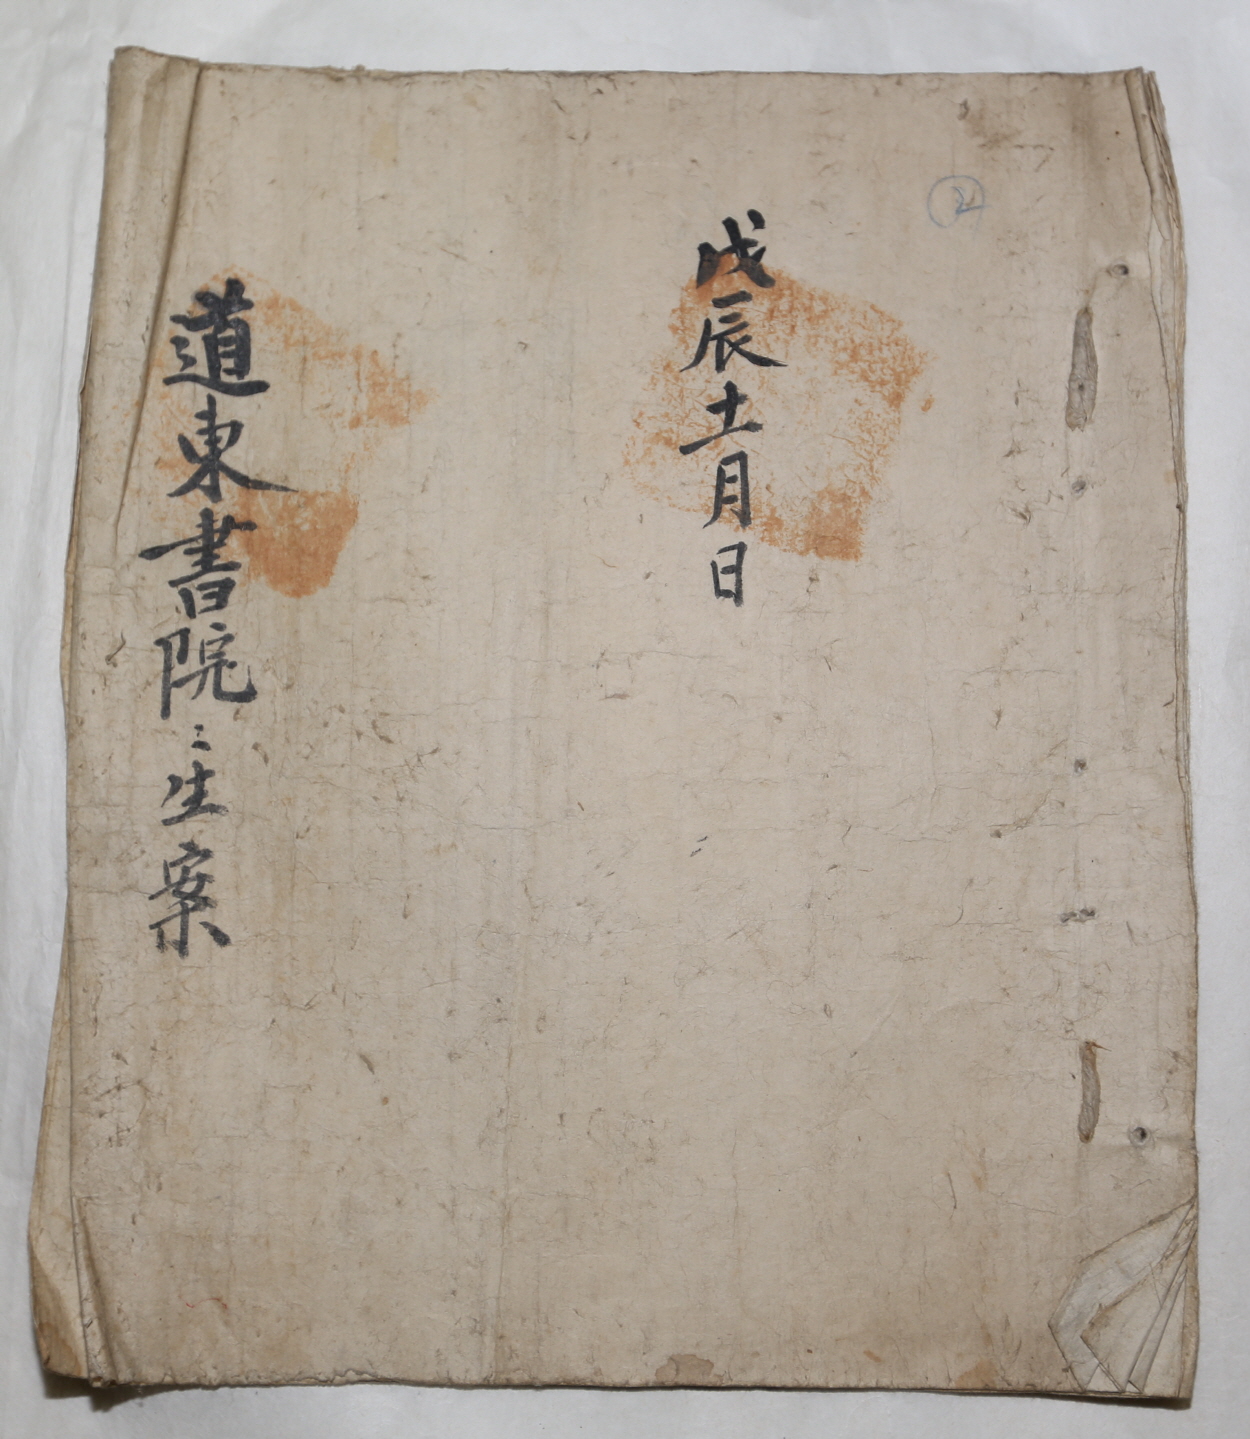 ②
戊辰十一月日
道東書院〻生案